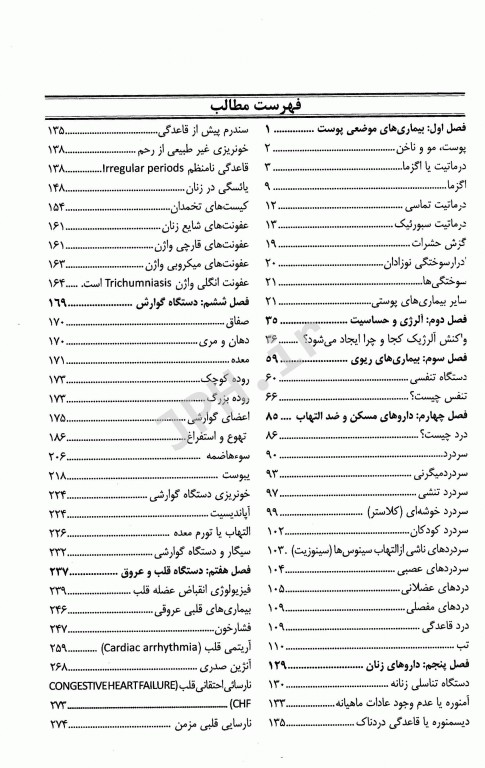 فهرست مطالب
فصل اول: بیماری‌های موضعی پوست ............... ۱
پوست، مو و ناخن ............... ۲
درماتیت یا اگزما ............... ۳
اگزما ............... ۹
درماتیت تماسی ............... ۱۲
درماتیت سبورئیک ............... ۱۳
گزش حشرات ............... ۱۹
ادرارسوختگی نوزادان ............... ۲۰
سوختگی‌ها ............... ۲۱
سایر بیماری‌های پوستی ............... ۲۱
فصل دوم: آلرژی و حساسیت ............... ۳۵
واکنش آلرژیک کجا و چرا ایجاد می‌شود؟ ........ ۳۶
فصل سوم: بیماری‌های ریوی ............... ۵۹
دستگاه تنفسی ............... ۶۰
تنفس چیست؟ ............... ۶۶
فصل چهارم: داروهای مسکن و ضد التهاب .... ۸۵
درد چیست؟ ............... ۸۶
سردرد ............... ۹۰
سردرد میگرنی ............... ۹۳
سردرد تنشی ............... ۹۷
سردرد خوشه‌ای (کلاستر) ............... ۹۹
سردرد کودکان ............... ۱۰۲
سردردهای ناشی از التهاب سینوس‌ها (سینوزیت) . ۱۰۳
سردردهای عصبی ............... ۱۰۴
دردهای عضلانی ............... ۱۰۵
دردهای مفصلی ............... ۱۰۹
درد قاعدگی ............... ۱۰۹
تب ............... ۱۱۰
فصل پنجم: داروهای زنان ............... ۱۲۹
دستگاه تناسلی زنانه ............... ۱۳۰
آمنوره یا عدم وجود عادات ماهیانه ............... ۱۳۳
دیسمنوره یا قاعدگی دردناک ............... ۱۳۵
سندرم پیش از قاعدگی ............... ۱۳۵
خونریزی غیر طبیعی از رحم ............... ۱۳۸
قاعدگی نامنظم Irregular periods ............... ۱۳۸
یائسگی در زنان ............... ۱۴۸
کیست‌های تخمدان ............... ۱۵۴
عفونت‌های شایع زنان ............... ۱۶۱
عفونت‌های قارچی واژن ............... ۱۶۱
عفونت‌های میکروبی واژن ............... ۱۶۳
عفونت انگلی واژن Trichumniasis است. ..... ۱۶۴
فصل ششم: دستگاه گوارش ............... ۱۶۹
صفاق ............... ۱۷۰
دهان و مری ............... ۱۷۰
معده ............... ۱۷۱
روده کوچک ............... ۱۷۳
روده بزرگ ............... ۱۷۳
اعضای گوارشی ............... ۱۷۵
تهوع و استفراغ ............... ۱۸۶
سوءهاضمه ............... ۲۰۶
یبوست ............... ۲۱۸
خونریزی دستگاه گوارشی ............... ۲۲۴
آپاندیسیت ............... ۲۲۴
التهاب یا تورم معده ............... ۲۲۶
سیگار و دستگاه گوارشی ............... ۲۳۲
فصل هفتم: دستگاه قلب و عروق ............... ۲۳۷
فیزیولوژی انقباض عضله قلب ............... ۲۳۹
بیماری‌های قلبی عروقی ............... ۲۴۶
فشارخون ............... ۲۴۷
آریتمی قلب (Cardiac arrhythmia) .......... ۲۵۹
آنژین صدری ............... ۲۶۸
نارسائی احتقانی قلب (CONGESTIVE HEART FAILURE
CHF) ............... ۲۷۳
نارسایی قلبی مزمن ............... ۲۷۴
JPH.ir